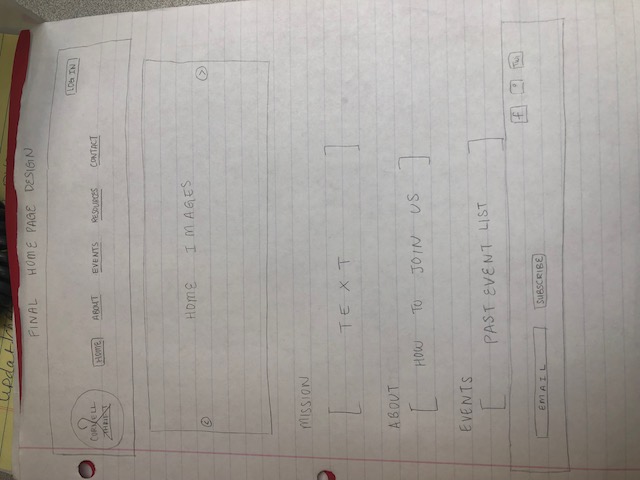 Updat
FINAL HOME PAGE DESIGN
LOG IN
CORNELL
THRIFT
HOME ABOUT EVENTS RESOURCES CONTACT
HOME IMAGES
< >
MISSION
[ TEXT ]
ABOUT
[ HOW TO JOIN US ]
EVENTS
[ PAST EVENT LIST ]
f
EMAIL SUBSCRIBE